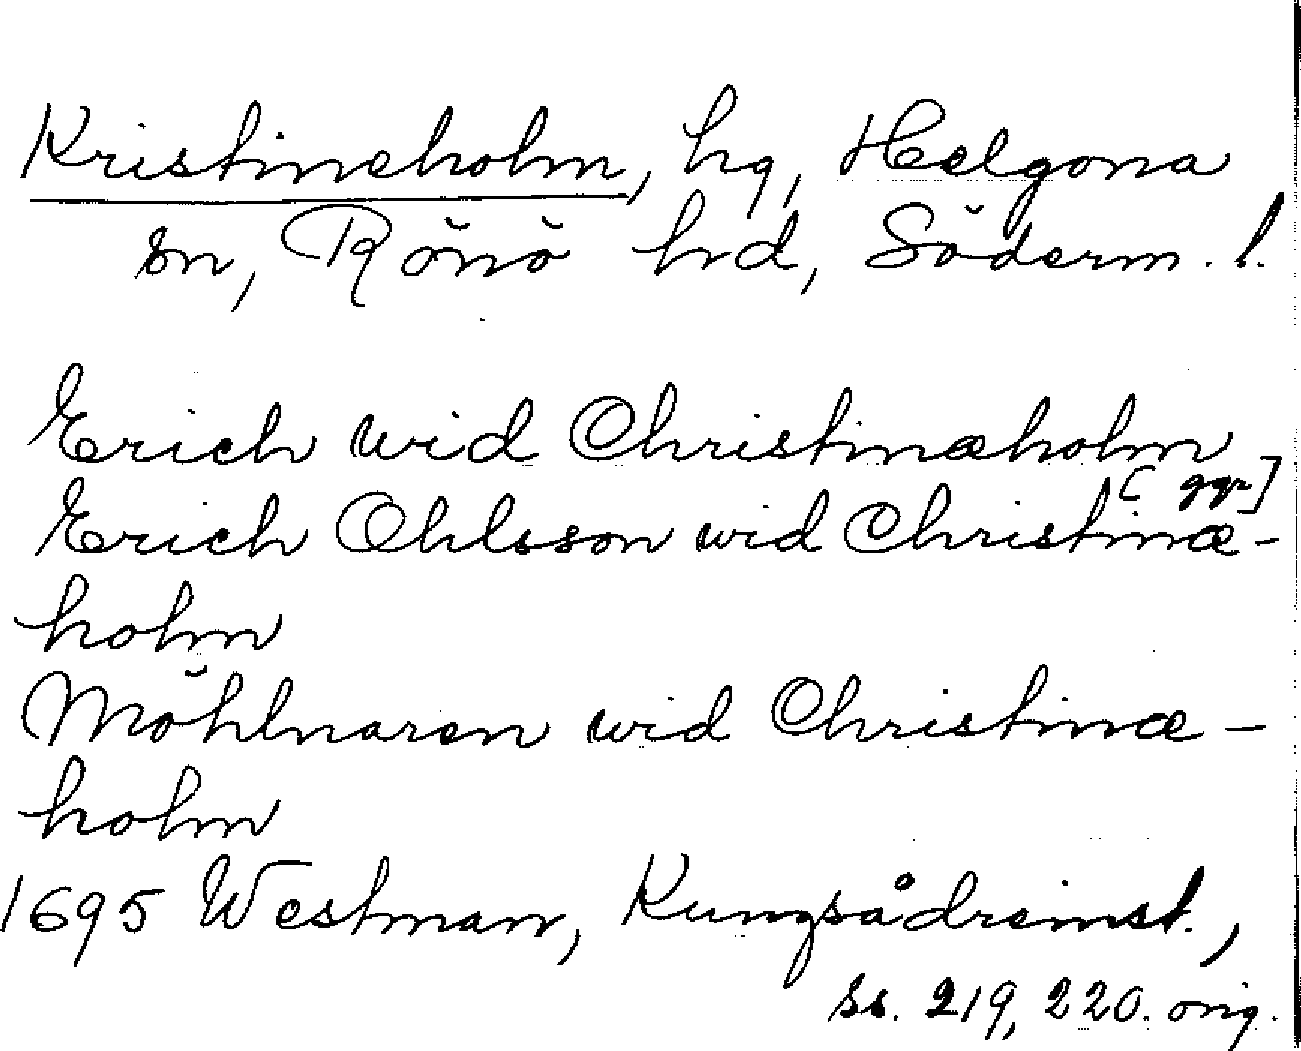 Kristineholm, hg, Helgona
sn, Rönö hd, Söderm. l.
Erich wid Christinæholm
[ ggr]
Erich Ohlsson wid Christinæ-
holm
Möhlnaren wid Christinæ-
holm
1695 Westman, Kungsådreinst.,
ss. 219, 220. orig.